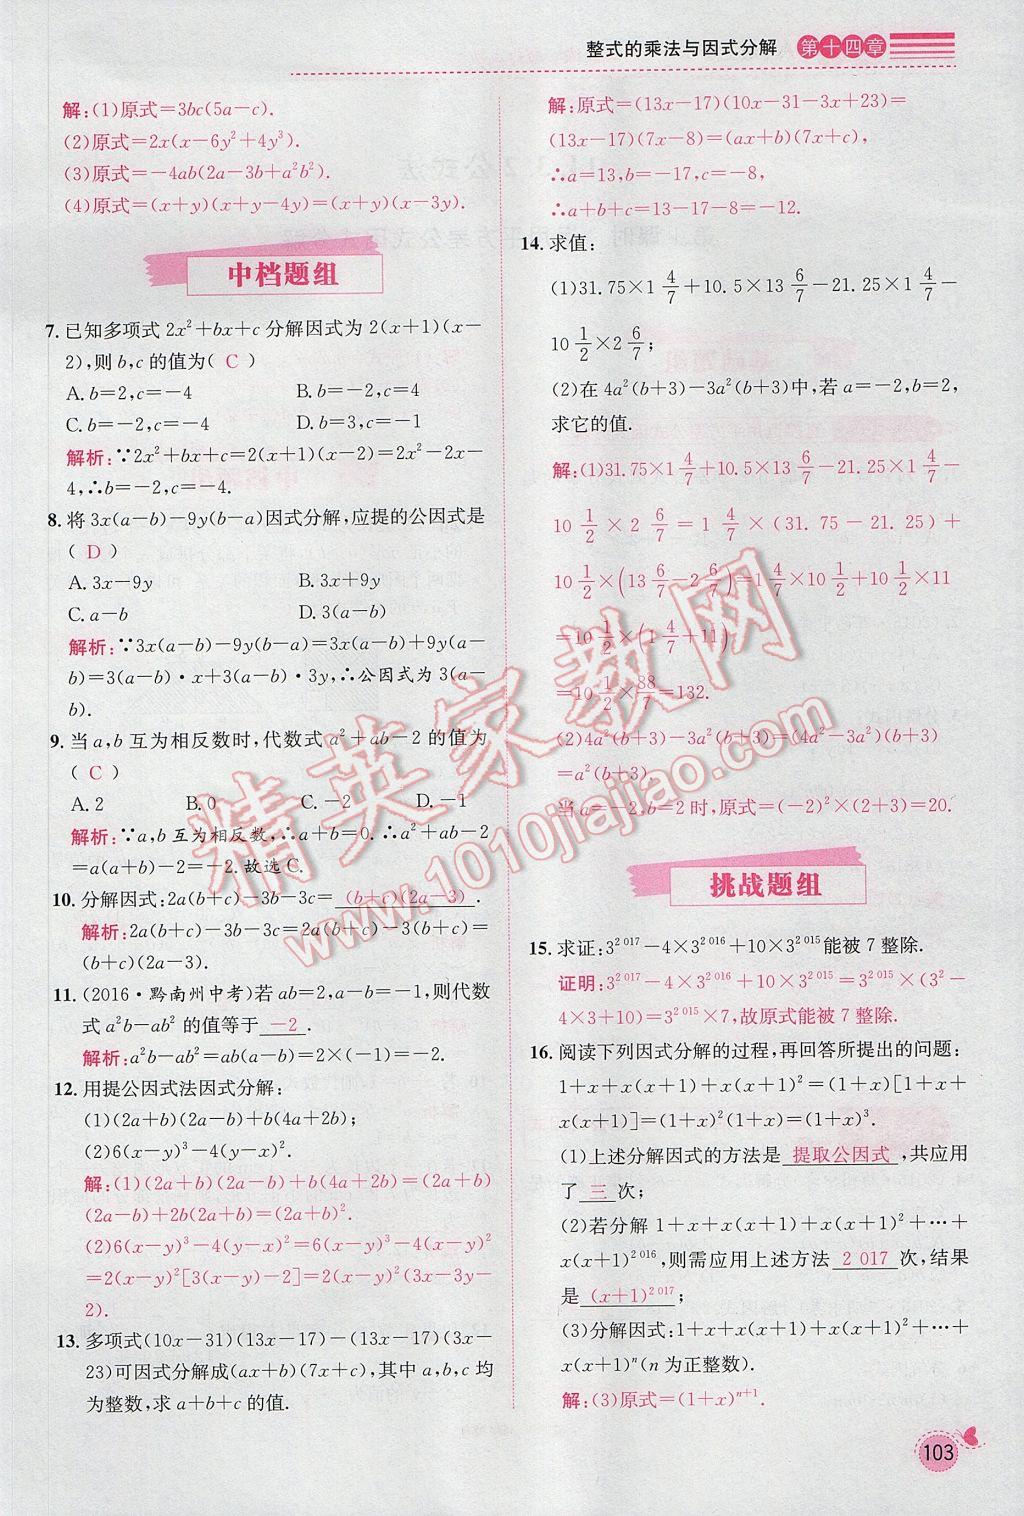 整式的乘法与因式分解 第十四章
解:(1)原式=3bc(5a-c).
(2)原式=2x(x-6y²+4y³).
(3)原式=-4ab(2a-3b+a²b²).
(4)原式=(x+y)(x+y-4y)=(x+y)(x-3y).
中档题组
7. 已知多项式 2x²+bx+c 分解因式为 2(x+1)(x-
2),则 b,c 的值为( C )
A. b=2,c=-4 B. b=-2,c=4
C. b=-2,c=-4 D. b=3,c=-1
解析:∵2x²+bx+c=2(x+1)(x-2)=2x²-2x-
4,∴b=-2,c=-4.
8. 将 3x(a-b)-9y(b-a)因式分解,应提的公因式是
( D )
A. 3x-9y B. 3x+9y
C. a-b D. 3(a-b)
解析:∵3x(a-b)-9y(b-a)=3x(a-b)+9y(a-
b)=3(a-b)·x+3(a-b)·3y,∴公因式为 3(a-
b).
9. 当 a,b 互为相反数时,代数式 a²+ab-2 的值为
( C )
A. 2 B. 0 C. -2 D. -1
解析:∵a,b 互为相反数,∴a+b=0. ∴a²+ab-2
=a(a+b)-2=-2. 故选 C.
10. 分解因式:2a(b+c)-3b-3c= (b+c)(2a-3) .
解析:2a(b+c)-3b-3c=2a(b+c)-3(b+c)=
(b+c)(2a-3).
11. (2016·黔南州中考)若 ab=2,a-b=-1,则代数
式 a²b-ab² 的值等于 -2 .
解析:a²b-ab²=ab(a-b)=2×(-1)=-2.
12. 用提公因式法因式分解:
(1)(2a+b)(2a-b)+b(4a+2b);
(2)6(x-y)³-4(y-x)².
解:(1)(2a+b)(2a-b)+b(4a+2b)=(2a+b)
(2a-b)+2b(2a+b)=(2a+b)².
(2)6(x-y)³-4(y-x)²=6(x-y)³-4(x-y)²
=2(x-y)²[3(x-y)-2]=2(x-y)²(3x-3y-
2).
13. 多项式(10x-31)(13x-17)-(13x-17)(3x-
23)可因式分解成(ax+b)(7x+c),其中 a,b,c 均
为整数,求 a+b+c 的值.
解:原式=(13x-17)(10x-31-3x+23)=
(13x-17)(7x-8)=(ax+b)(7x+c),
∴a=13,b=-17,c=-8,
∴a+b+c=13-17-8=-12.
14. 求值:
(1)31.75×1 4/7+10.5×13 6/7-21.25×1 4/7-
10 1/2×2 6/7;
(2)在 4a²(b+3)-3a²(b+3)中,若 a=-2,b=2,
求它的值.
解:(1)31.75×1 4/7+10.5×13 6/7-21.25×1 4/7-
10 1/2×2 6/7=1 4/7×(31.75-21.25)+
10 1/2×(13 6/7-2 6/7)=1 4/7×10 1/2+10 1/2×11
=10 1/2×(1 4/7+11)
=10 1/2×88/7=132.
(2)4a²(b+3)-3a²(b+3)=(4a²-3a²)(b+3)
=a²(b+3).
当 a=-2,b=2 时,原式=(-2)²×(2+3)=20.
挑战题组
15. 求证:3^2 017-4×3^2 016+10×3^2 015能被 7 整除.
证明:3^2 017-4×3^2 016+10×3^2 015=3^2 015×(3²-
4×3+10)=3^2 015×7,故原式能被 7 整除.
16. 阅读下列因式分解的过程,再回答所提出的问题:
1+x+x(x+1)+x(x+1)²=(1+x)[1+x+
x(x+1)]=(1+x)²(1+x)=(1+x)³.
(1)上述分解因式的方法是 提取公因式 ,共应用
了 三 次;
(2)若分解 1+x+x(x+1)+x(x+1)²+…+
x(x+1)^2 016,则需应用上述方法 2 017 次,结果
是 (x+1)^2 017 ;
(3)分解因式:1+x+x(x+1)+x(x+1)²+…+
x(x+1)ⁿ(n 为正整数).
解:(3)原式=(1+x)ⁿ⁺¹.
103
精英家教网
www.1010jiajiao.com